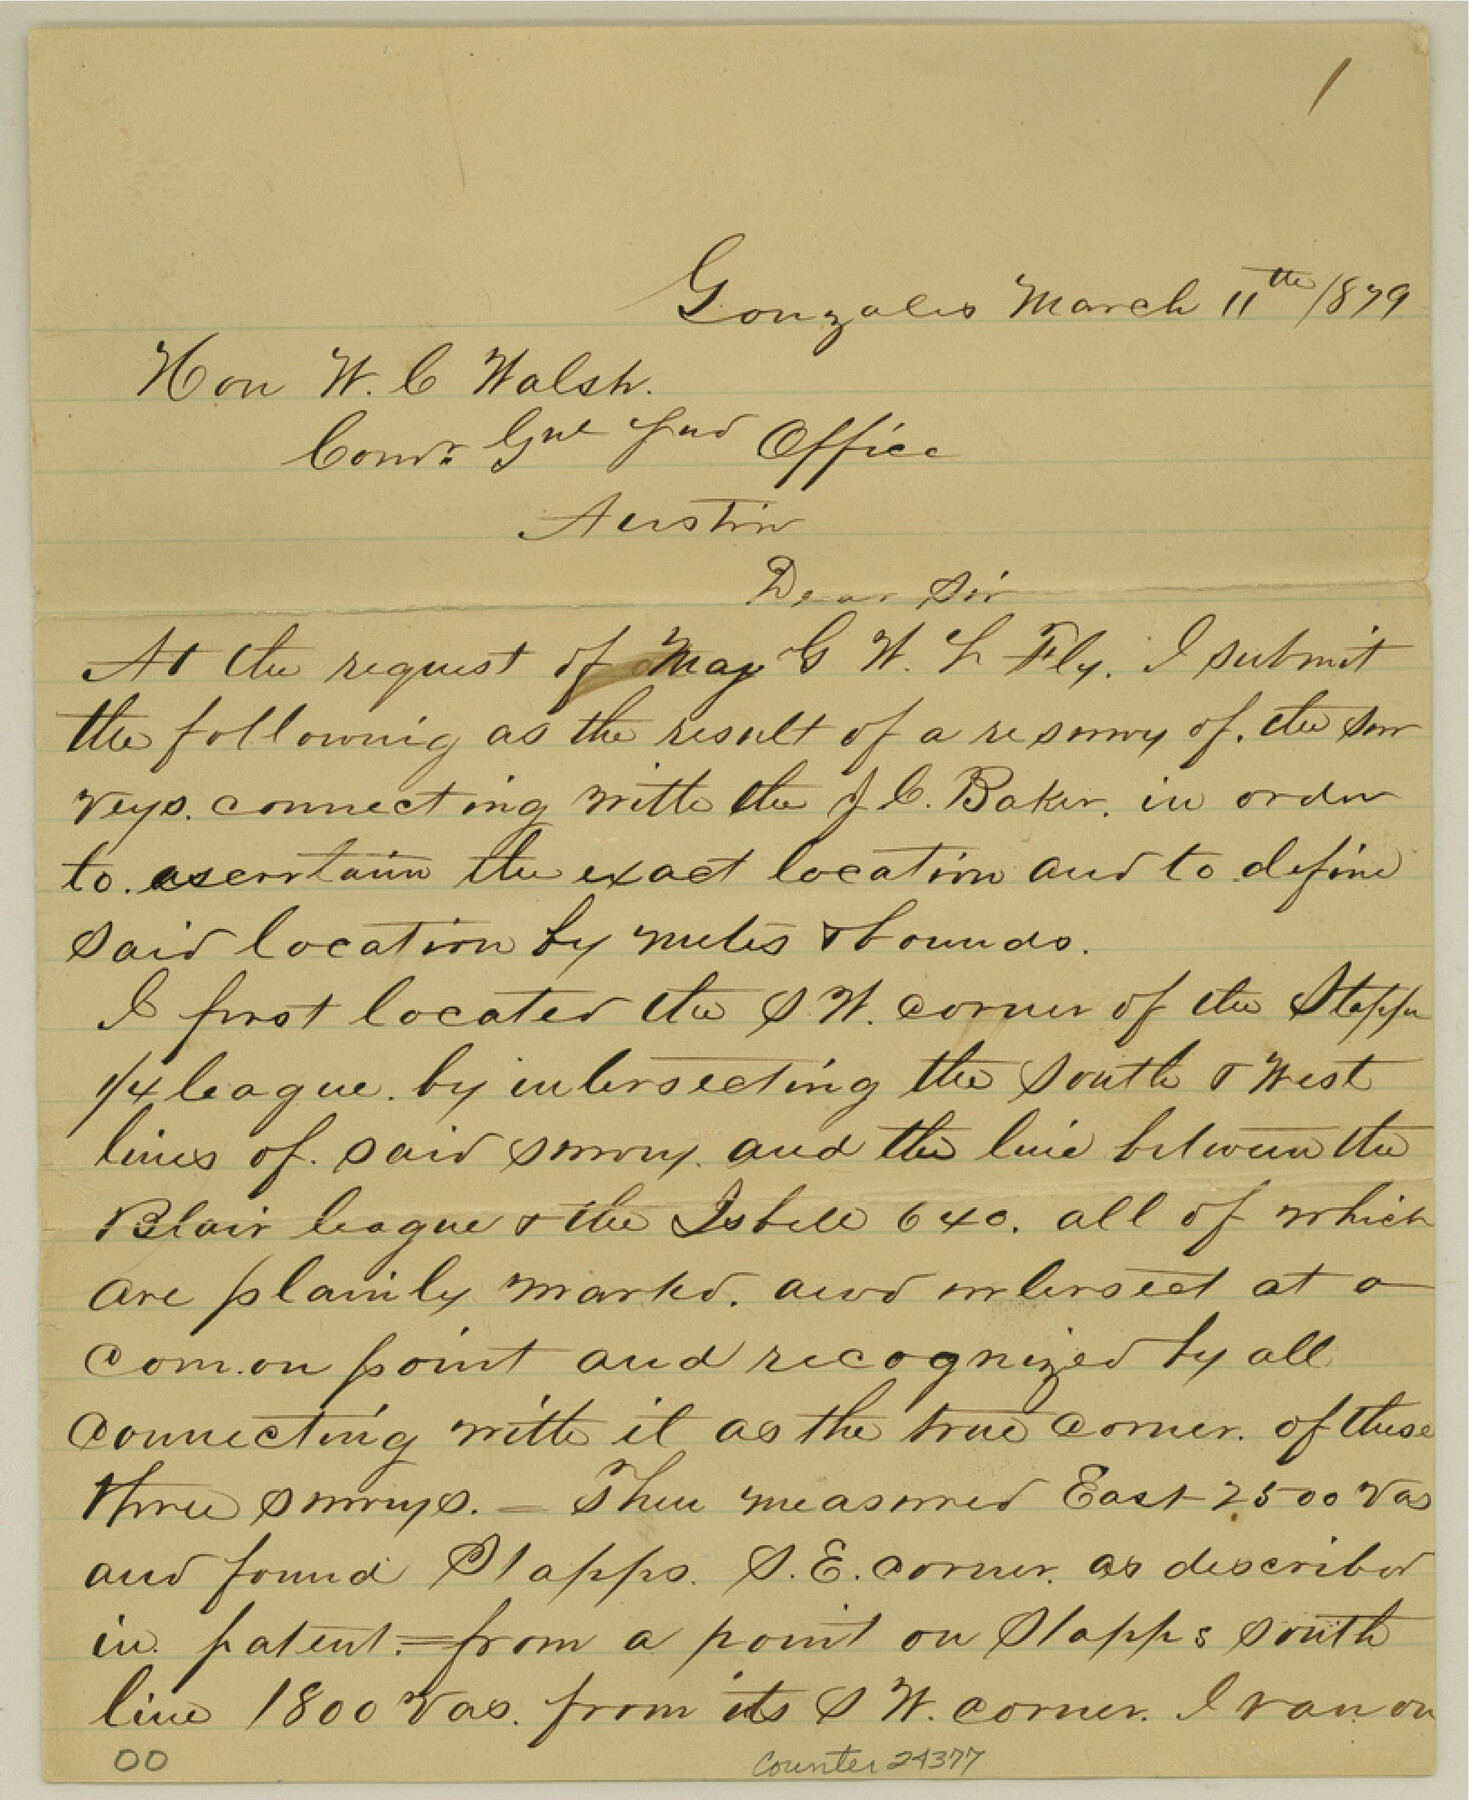 1
Gonzales March 11th 1879
Hon W. C Walsh.
Comr. Gnl Lnd Office
Austin
Dear Sir
At the request of Maj G W. L Fly. I submit
the following as the result of a resurvey of. the sur
veys. connecting with the J C. Baker. in order
to. ascertain the exact location and to define
said location by metes & bounds.
I first located the S.W. corner of the Stapps
1/4 league. by intersecting the South & West
lines of. said survey. and the line between the
Blair league & the Isbell 640. all of which
are plainly marked. and intersect at a
com.on point and recognized by all
connecting with it as the true corner. of these
three surveys. — Then measured East 2500 vas
and found Stapps. S.E. corner. as described
in. patent. = from a point on Stapps south
line 1800 vas. from its S W. corner. I ran on
00
Counter 24377